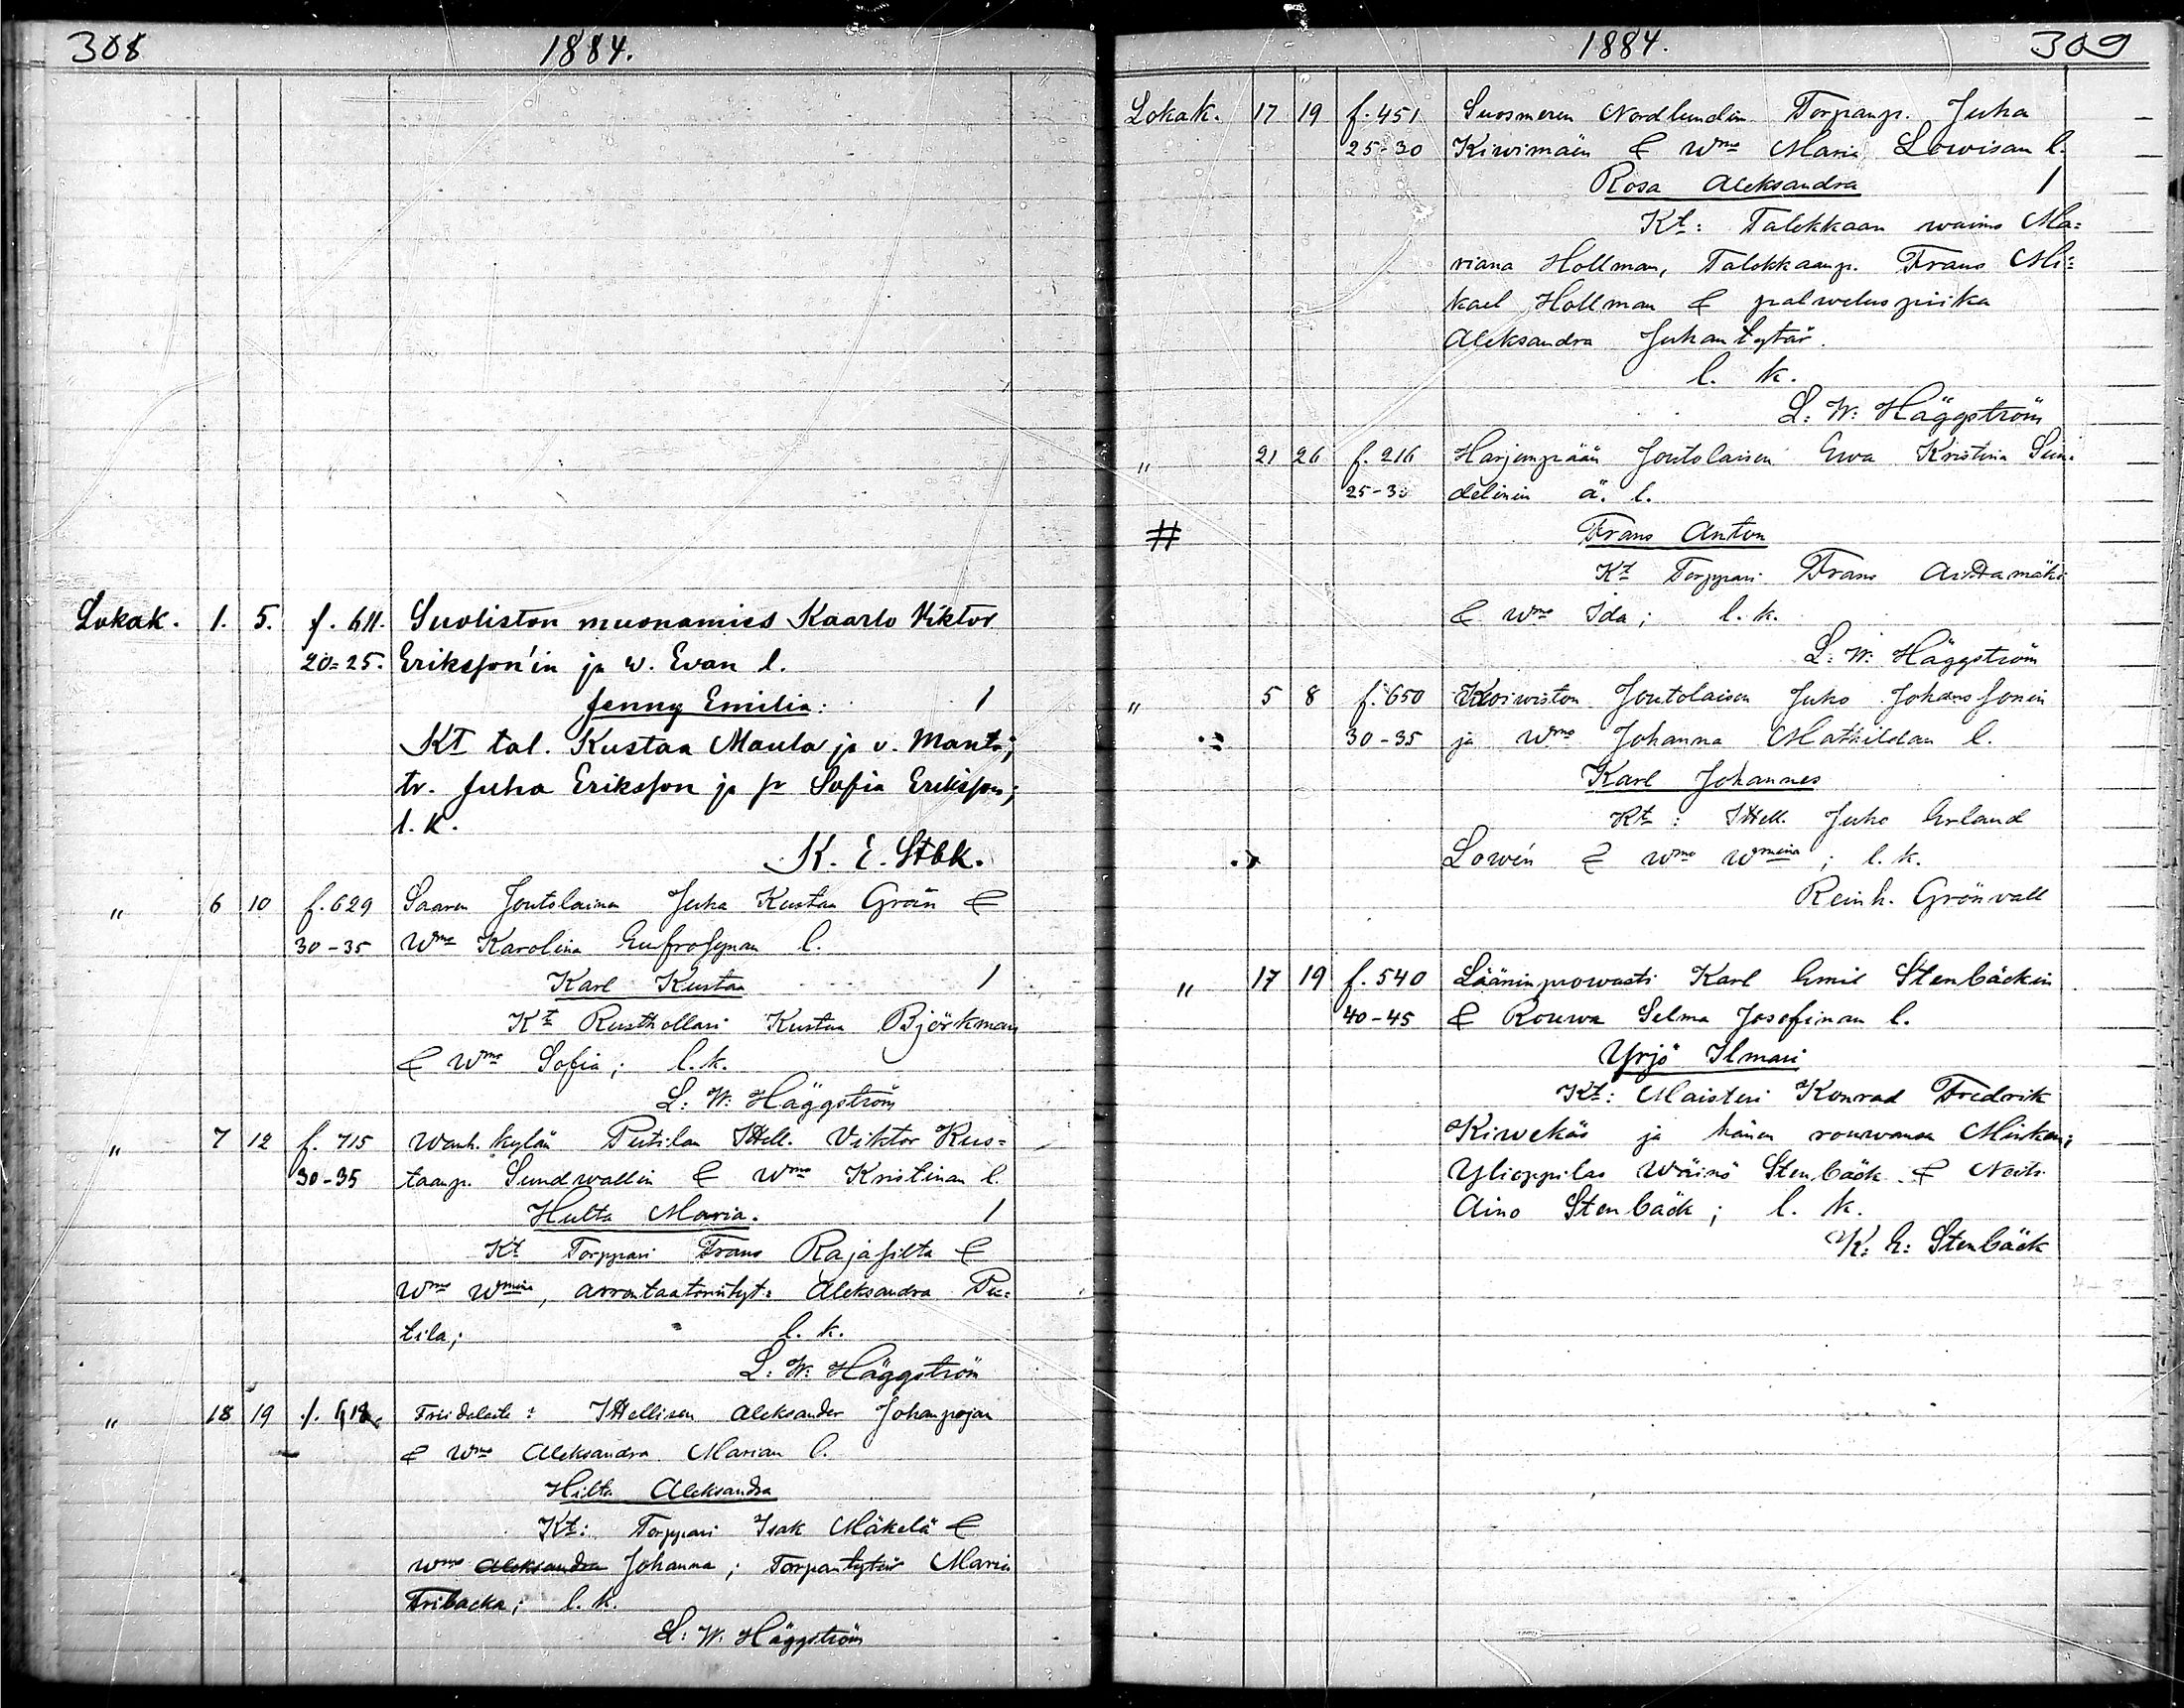 308
1884.
Lokak. 1. 5. f. 611. Suoliston muonamies Kaarlo Viktor
20=25. Eriksson'in ja w. Evan l.
Jenny Emilia: 1
Kt tal. Kustaa Maula ja v. Manta;
tr. Juha Eriksson ja Sofia Eriksson;
l. k.
K. E. Stbk.
" 6 10 f. 629 Saaren Joutolaisen Juha Kustaa Grön &
30-35 Wmo Karolina Eufrosynan l.
Karl Kustaa 1
Kt Rusthollari Kustaa Björkman
& Wmo Sofia; l. k.
L: W: Häggström
" 7 12 f. 715 Wanh. kylän Putilan Ittell. Viktor Kus=
30-35 taanp. Sundwallin & Wmo Kristinan l.
Hulta Maria. 1
Kt Torppari Frans Rajasilta &
Wmo Wmoina, arrentaatorintyt: Aleksandra Pu=
tila; l. k.
L. W. Häggström
" 18 19 f. Ittellisen Aleksander Johanpojan
& Wmo Aleksandra Marian l.
Hilta Aleksandra
Kt: Torppari Isak Mäkelä &
Wmo Aleksandra Johanna; Torpantytär Maria
Tribacka; l. k.
L: W. Häggström
1884. 309
Lokak. 17 19 f. 451 Suosmeren Nordlundin Torpanp. Juha
25-30 Kiwimäen & Wmo Maria Lowisan l.
Rosa Aleksandra 1
Kt: Talokkaan waimo Ma=
riana Hollman, Talokkaanp. Frans Mi=
kael Hollman & palweluspiika
Aleksandra Juhantytär.
l. k.
L: W: Häggström
" 21 26 f. 216 Harjunpään Joutolaisen Ewa Kristina Sun=
25-30 delinin ä. l.
# Frans Anton
Kt Torppari Frans Aittamäki
& Wmo Ida; l. k.
L: W: Häggström
" 5 8 f. 650 Koiwiston Joutolaisen Juho Johanssonin
30-35 ja Wmo Johanna Mathildan l.
Karl Johannes
Kt: Ittell. Juho Erland
Lowén & Wmo Wmoina; l. k.
Reinh. Grönvall
" 17 19 f. 540 Lääninprowasti Karl Emil Stenbäckin
40-45 & Rouwa Selma Josefinan l.
Yrjö Ilmari
Kt: Maisteri Konrad Fredrik
Kiwekäs ja hänen rouwansa
Ylioppilas Wäinö Stenbäck & Neiti
Aino Stenbäck; l. k.
K: E: Stenbäck